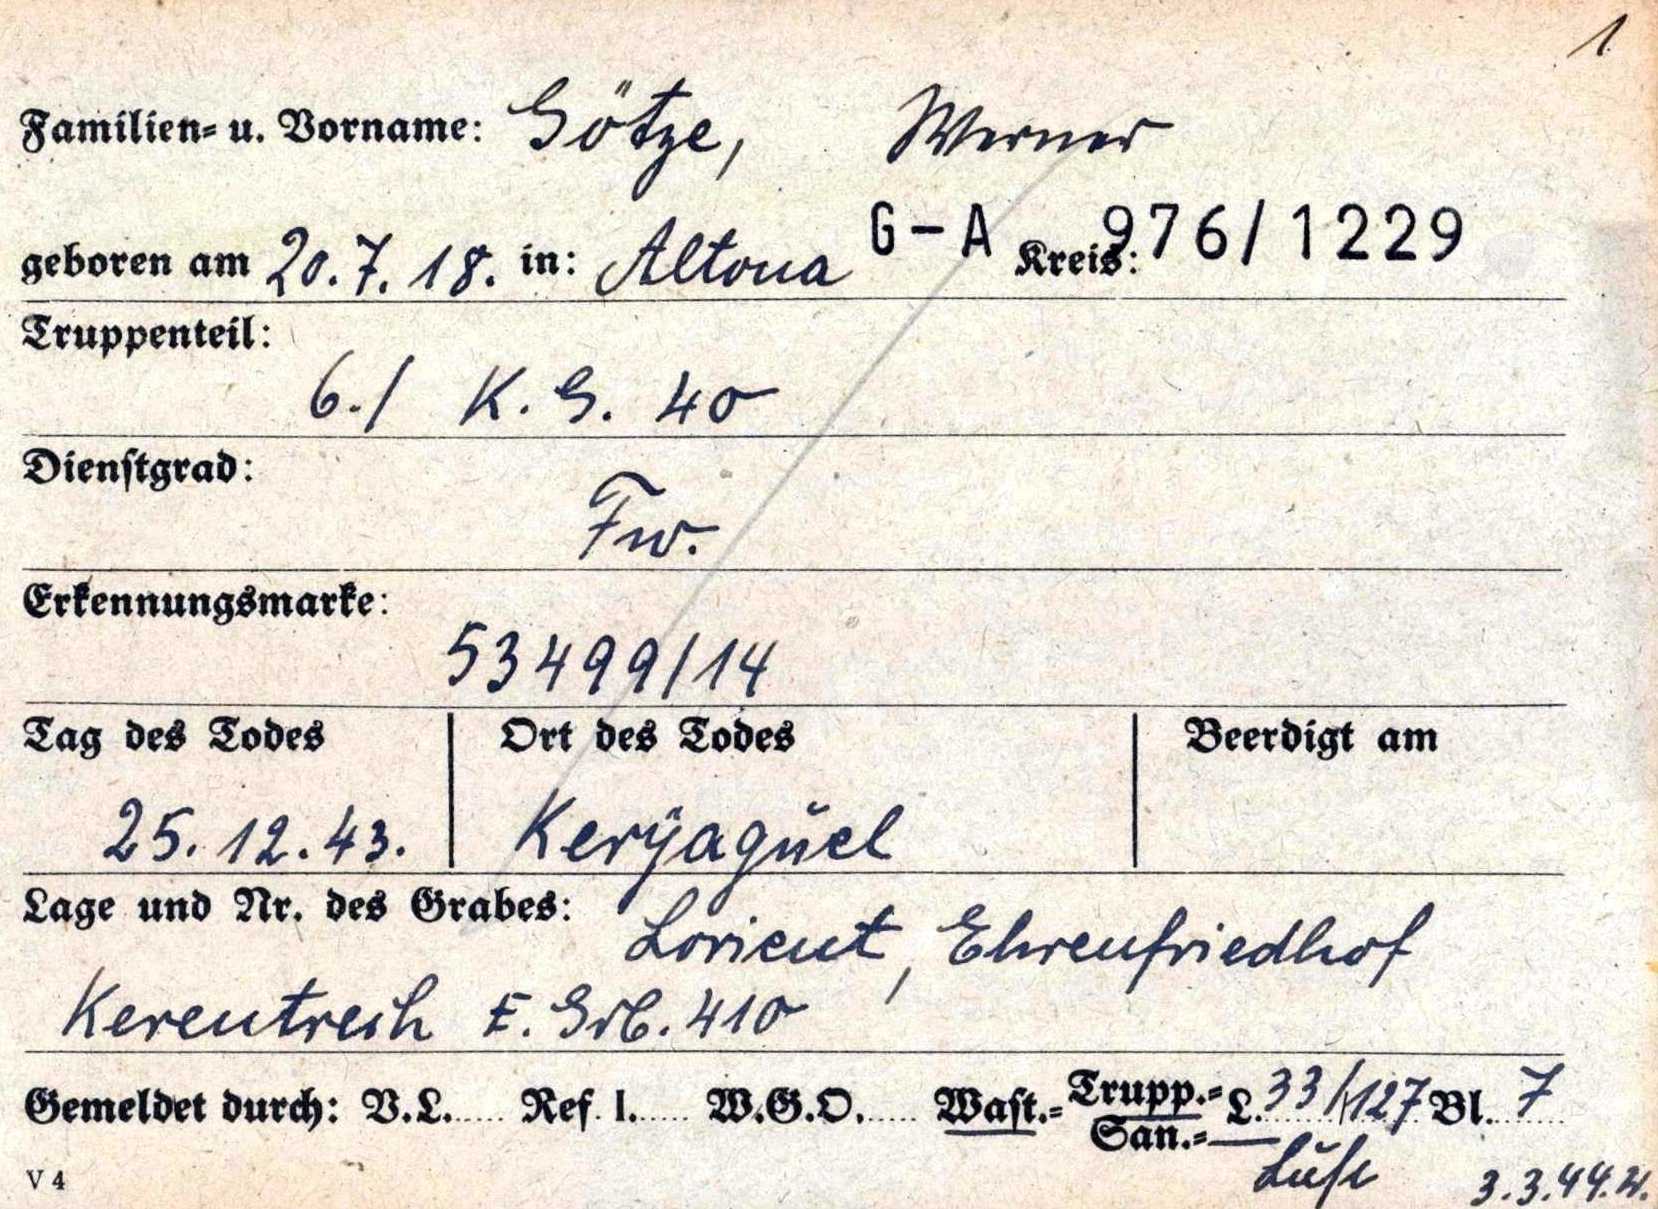 1
Familien- u. Vorname: Götze, Werner
geboren am 20.7.18. in: Altona G-A Kreis: 976/1229
Truppenteil:
6./ K.G. 40
Dienstgrad:
Fw.
Erkennungsmarke:
53499/14
Tag des Todes Ort des Todes Beerdigt am
25.12.43. Kerÿagŭel
Lage und Nr. des Grabes: Lorient, Ehrenfriedhof
Kerentrech E. Grb. 410
Gemeldet durch: V.L..... Ref. I..... W.G.O..... Wast.= Trupp.= L. 33/127 Bl. 7
San.=
V 4 3.3.44.